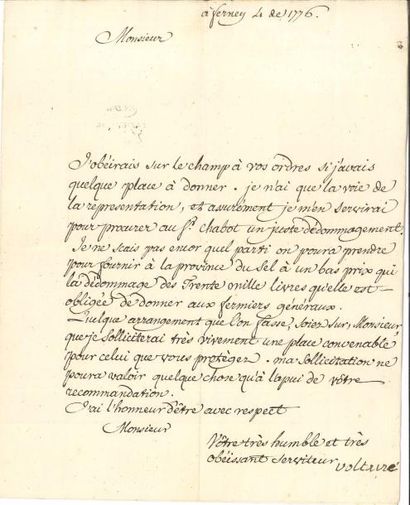 à ferney 4 de 1776.
Monsieur
J'obéirais sur le champ à vos ordres si j'avais
quelque place à donner. je n'ai que la voie de
la réprésentation, et assurément je m'en servirai
pour procurer au Sr. Chabot un juste dédommagement.
Je ne scais pas encor quel parti on poura prendre
pour fournir à la province du Sel à un bas prix qui
la dédommage des Trente mille livres qu'elle est
obligée de donner aux fermiers généraux.
Quelque arrangement que l'on fasse, soiez sur, Monsieur,
que je solliciterai très vivement une place convenable
pour celui que vous protégez. ma sollicitation ne
poura valoir quelque chose qu'à l'apui de vôtre
recommandation.
J'ai l'honneur d'être avec respect
Monsieur
Vôtre très humble et très
obéissant serviteur voltaire